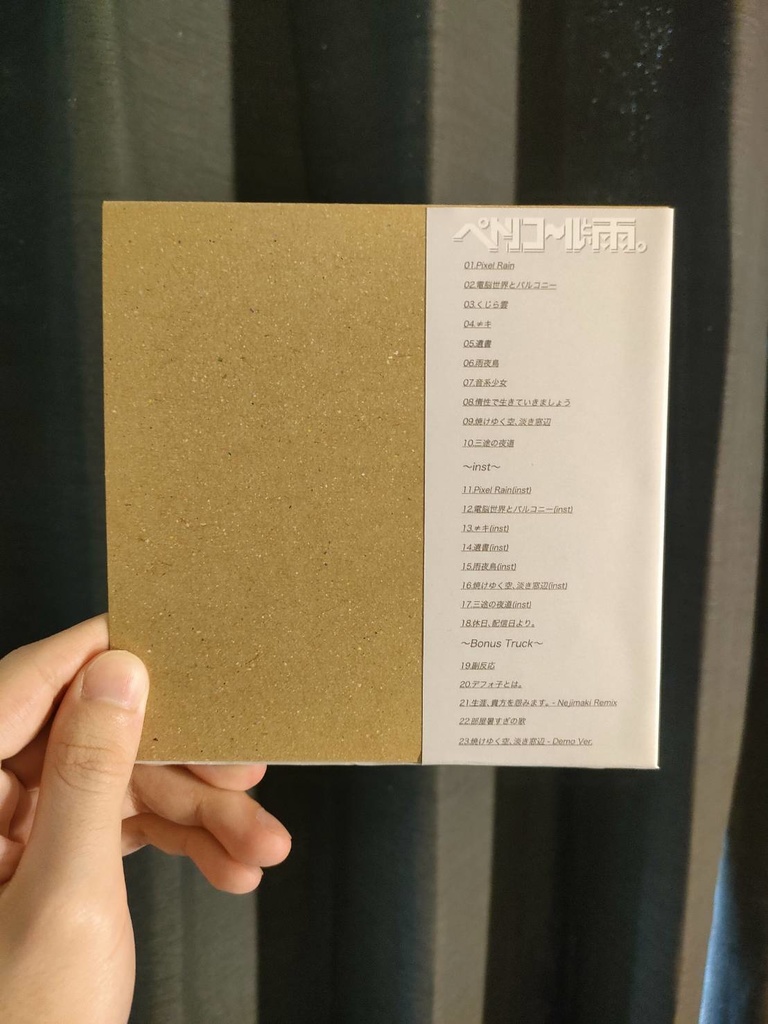 ペトリコールと雨。
01.Pixel Rain
02.電脳世界とバルコニー
03.くじら雲
04.≠キ
05.遺書
06.雨夜鳥
07.音系少女
08.惰性で生きていきましょう
09.焼けゆく空、淡き窓辺
10.三途の夜道
〜inst〜
11.Pixel Rain(inst)
12.電脳世界とバルコニー(inst)
13.≠キ(inst)
14.遺書(inst)
15.雨夜鳥(inst)
16.焼けゆく空、淡き窓辺(inst)
17.三途の夜道(inst)
18.休日、配信日より。
〜Bonus Truck〜
19.副反応
20.デフォ子とは。
21.生涯、貴方を怨みます。- Nejimaki Remix
22.部屋暑すぎの歌
23.焼けゆく空、淡き窓辺 - Demo Ver.